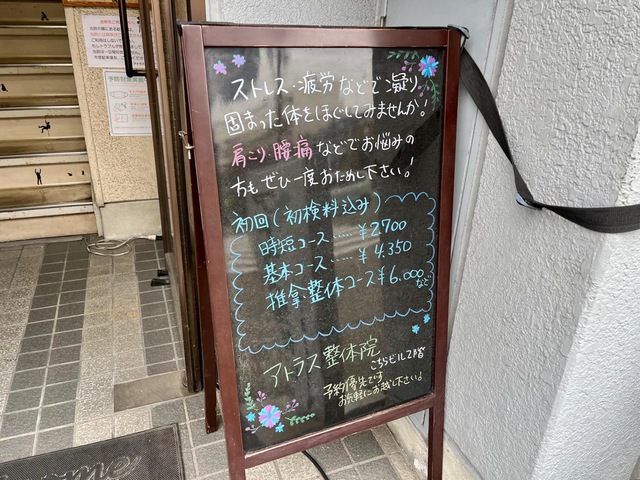 ストレス・疲労などで凝り
固まった体をほぐしてみませんか!
肩こり・腰痛などでお悩みの
方もぜひ一度おためし下さい!
初回(初検料込み)
時短コース……¥2700
基本コース……¥4.350
推拿整体コース¥6.000
など
アトラス整体院
こちらビル2階
予約優先です
お気軽にお越し下さい♪